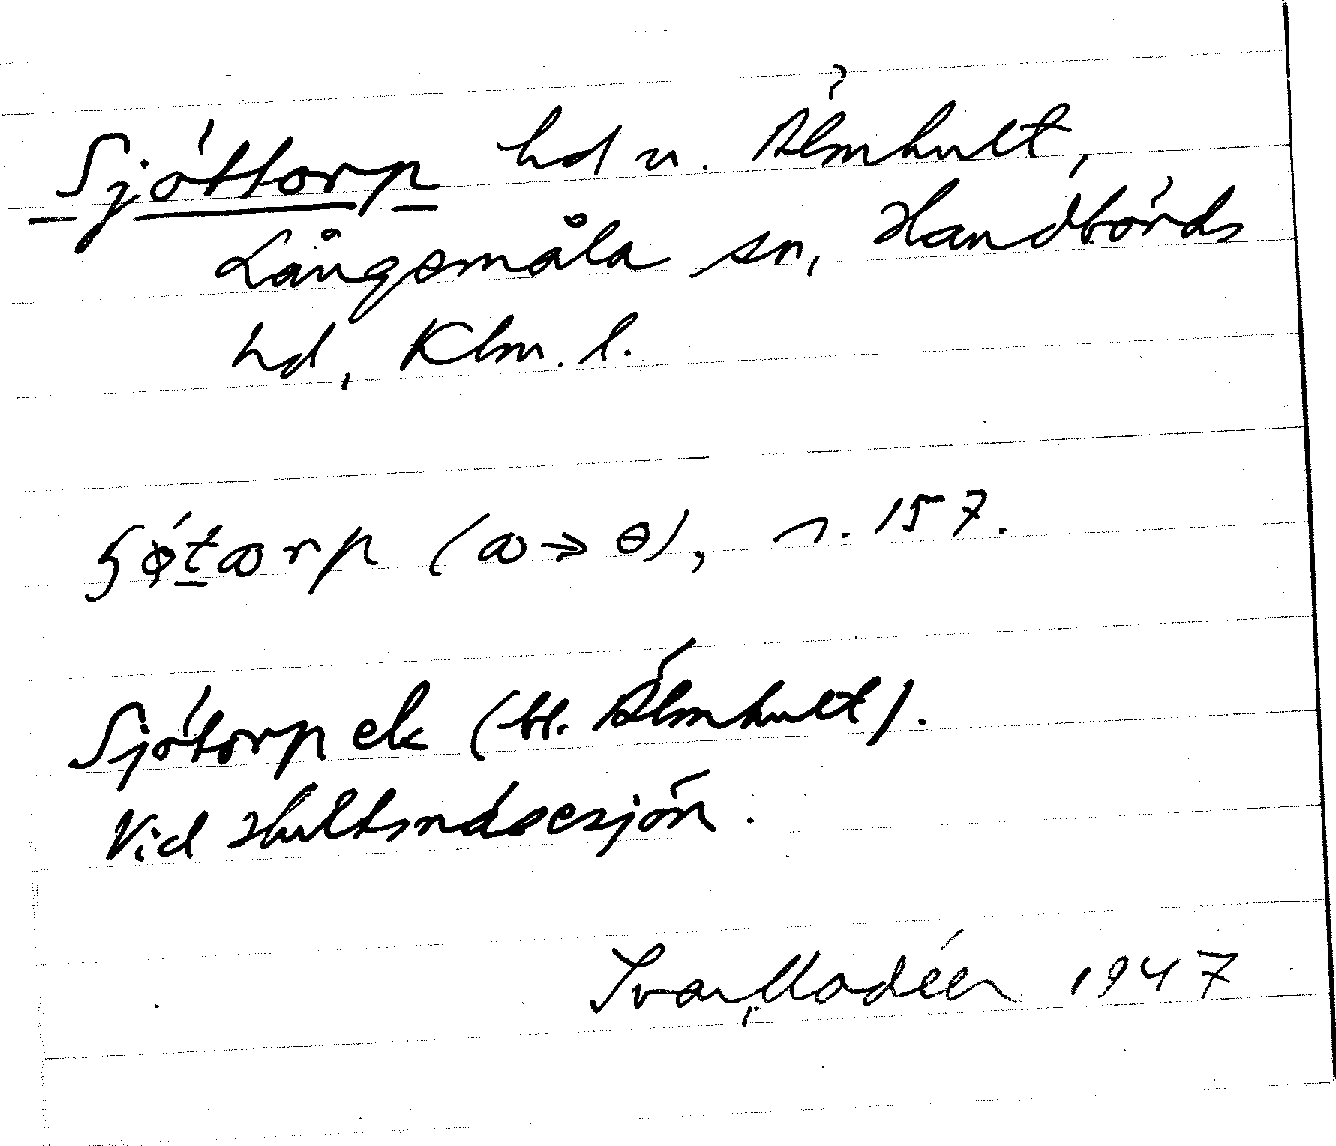 Sjöttorp hd u. Älmhult,
Långemåla sn, Handbörds
hd, Klm. l.
ʂø̀tɷrp (ɷ→ɵ), n. 157.
Sjötorp ek (bl. Älmhult).
Vid Hultsnäsesjön.
Ivar Modéer 1947